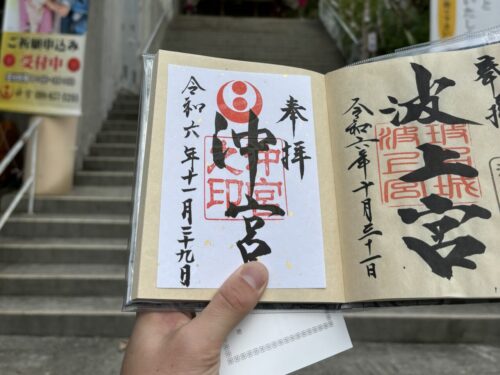 ご祈願申込み
受付中
奉拝
沖宮
沖宮之印
令和六年十一月二十九日
波上宮
波上宮
令和六年十月三十一日